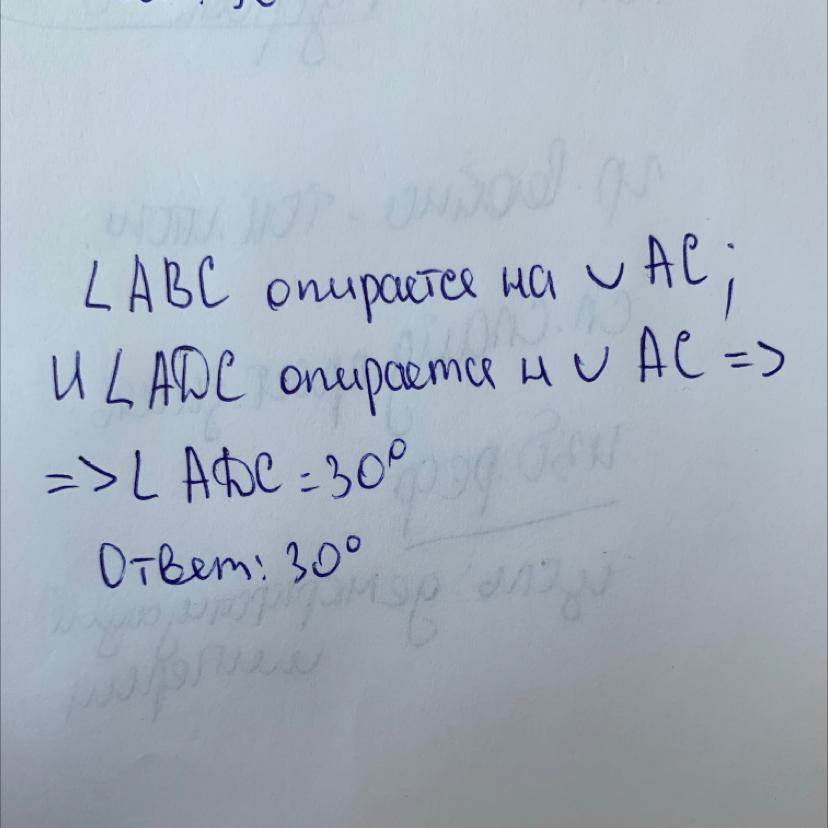 ∠ABC опирается на ◡ AC;
и ∠ADC опирается н ◡ AC =>
=> ∠ ADC = 30°
Ответ: 30°